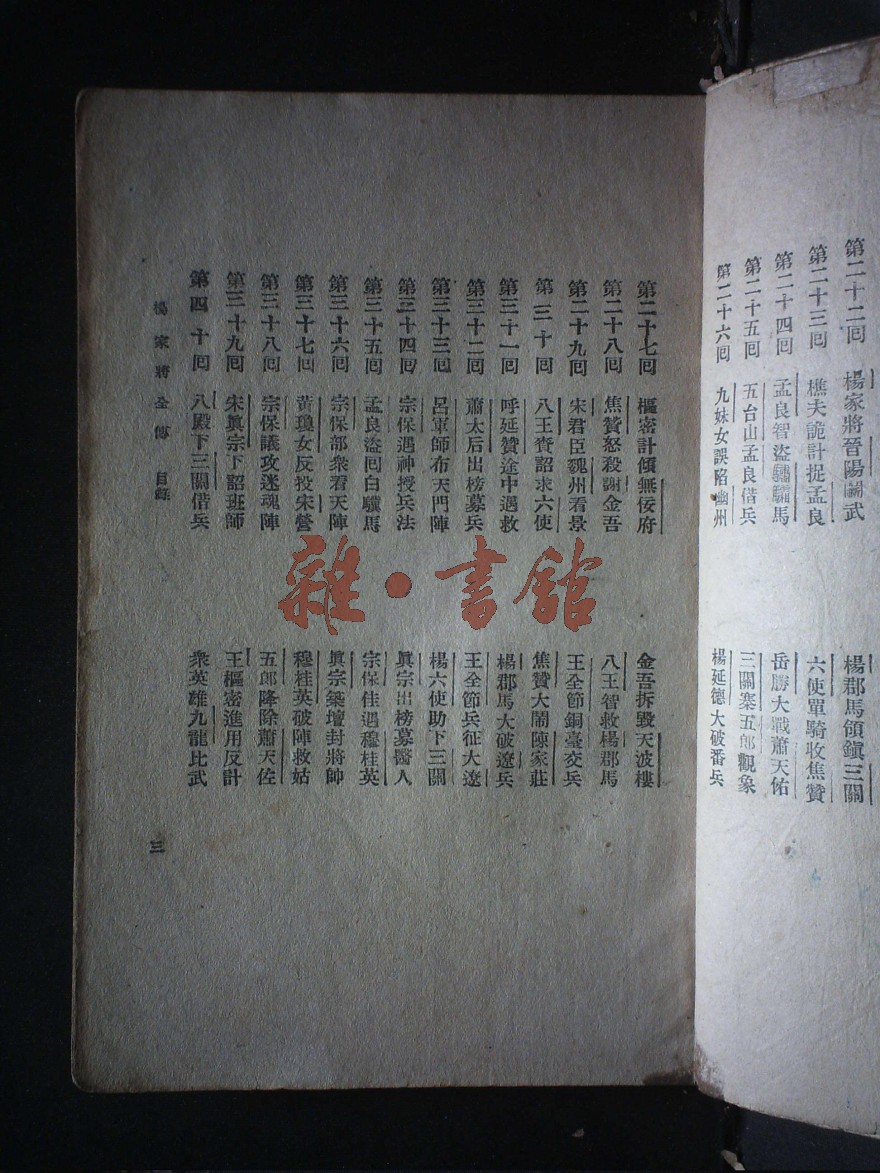 第二十二回 楊家將晉陽鬭武 楊郡馬領鎮三關
第二十三回 樵夫詭計捉孟良 六使單騎收焦贊
第二十四回 孟良智盜驌驦馬 岳勝大戰蕭天佑
第二十五回 五台山孟良借兵 三關寨五郎觀象
第二十六回 九妹女誤陷幽州 楊延德大破番兵
第二十七回 樞密計傾無佞府 金吾拆毀天波樓
第二十八回 焦贊怒殺謝金吾 八王智救楊郡馬
第二十九回 宋君臣魏州看景 王全節銅臺交兵
第三十回 八王賫詔求六使 焦贊大鬧陳家莊
第三十一回 呼延贊途中遇救 楊郡馬大破遼兵
第三十二回 蕭太后出榜募兵 王全節兵征大遼
第三十三回 呂軍師布天門陣 楊六使助下三關
第三十四回 宗保遇神授兵法 眞宗出榜募醫人
第三十五回 孟良盜回白驥馬 宗保佳遇穆桂英
第三十六回 宗保部衆看天陣 眞宗築壇封將帥
第三十七回 黃瓊女反投宋營 穆桂英破陣救姑
第三十八回 宗保議攻迷魂陣 五郎降除蕭天佐
第三十九回 宋眞宗下詔班師 王樞密進用反計
第四十回 八殿下三關借兵 衆英雄九龍比武
楊家將全傳 目錄 三
雜·書館